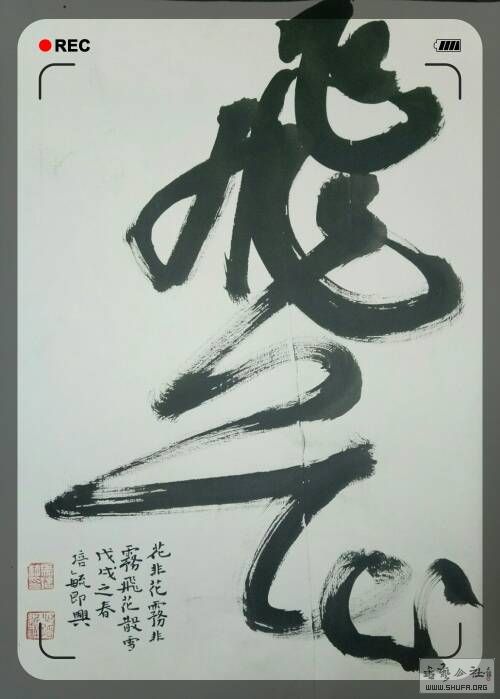 REC
飛
花非花霧非
霧飛花散雪
戊戌之春
培毓即興
WWW.SHUFA.ORG